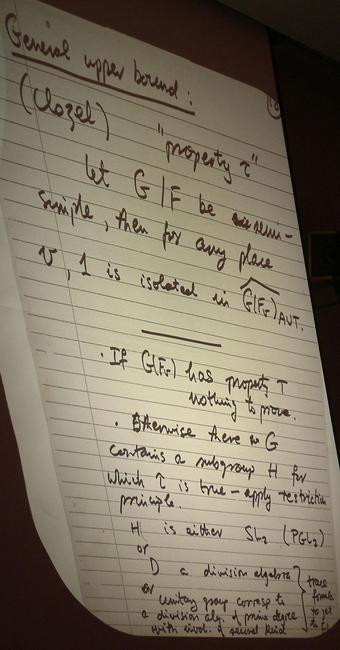 General upper bound:
(Clozel) "property τ"
let G/F be semi-
simple, then for any place
v, 1 is isolated in G(Fv)AUT.
· If G(Fv) has property T
nothing to prove.
· Otherwise there G
contains a subgroup H for
which τ is true – apply restriction
principle.
H is either SL2 (PGL2)
or
D a division algebra
or
unitary group corresp to
a division alg. of prime degree
with invol. of second kind
trace
formula
to get